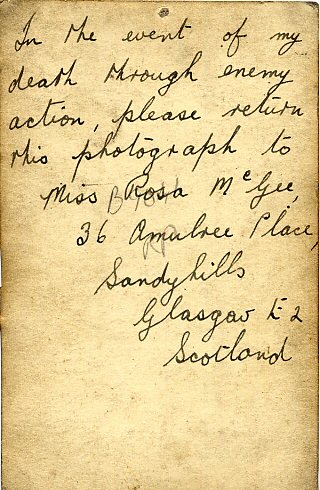 In the event of my
death through enemy
action, please return
this photograph to
Miss Rosa McGee,
36 Amulree Place,
Sandyhills
Glasgow E2
Scotland